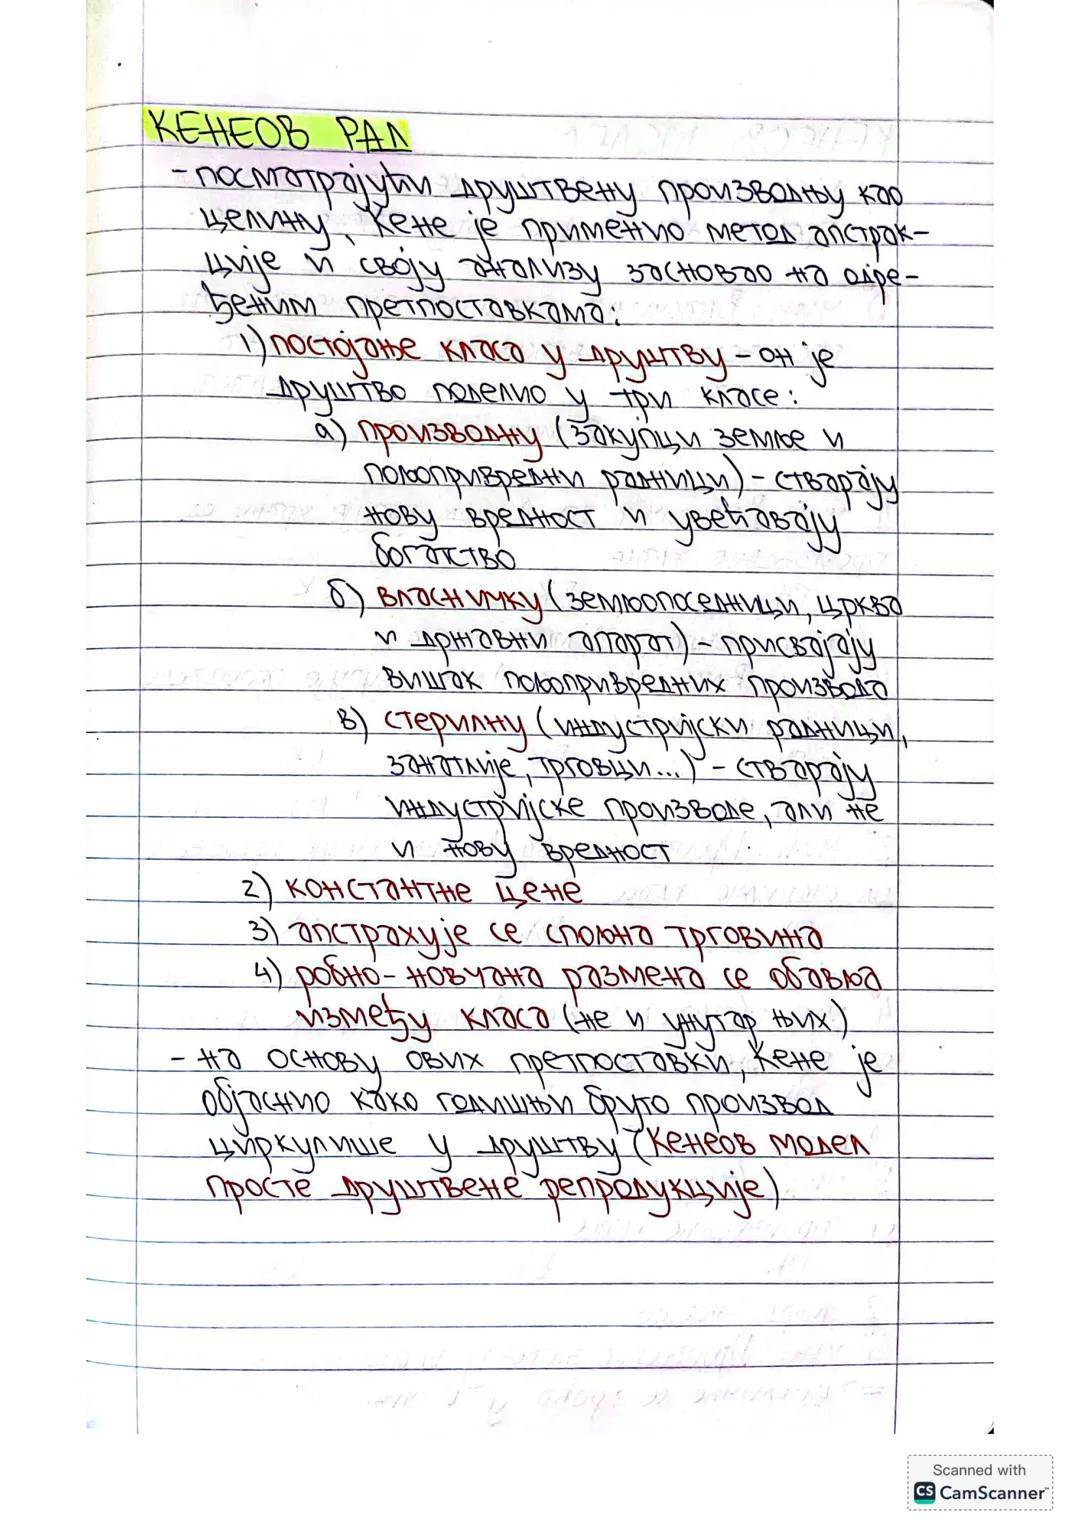 КЕНЕОВ РАД
- посматрајући друштвену производњу као
целину, Кене је применио метод апстрак-
ције и своју анализу засновао на одре-
ђеним претпоставкама:
1) постојање класа у друштву - он је
друштво поделио у три класе:
а) производну (закупци земље и
пољопривредни радници) - стварају
нову вредност и увећавају
богатство
б) власничку (земљопоседници, црква
и државни апарат) - присвајају
вишак пољопривредних производа
в) стерилну (индустријски радници,
занатлије, трговци...) - стварају
индустријске производе, али не
и нову вредност
2) константне цене
3) апстрахује се спољна трговина
4) робно-новчана размена се обавља
између класа (не и унутар њих)
- на основу ових претпоставки, Кене је
објаснио како годишњи бруто производ
циркулише у друштву (Кенеов модел
просте друштвене репродукције)
Scanned with
CS CamScanner